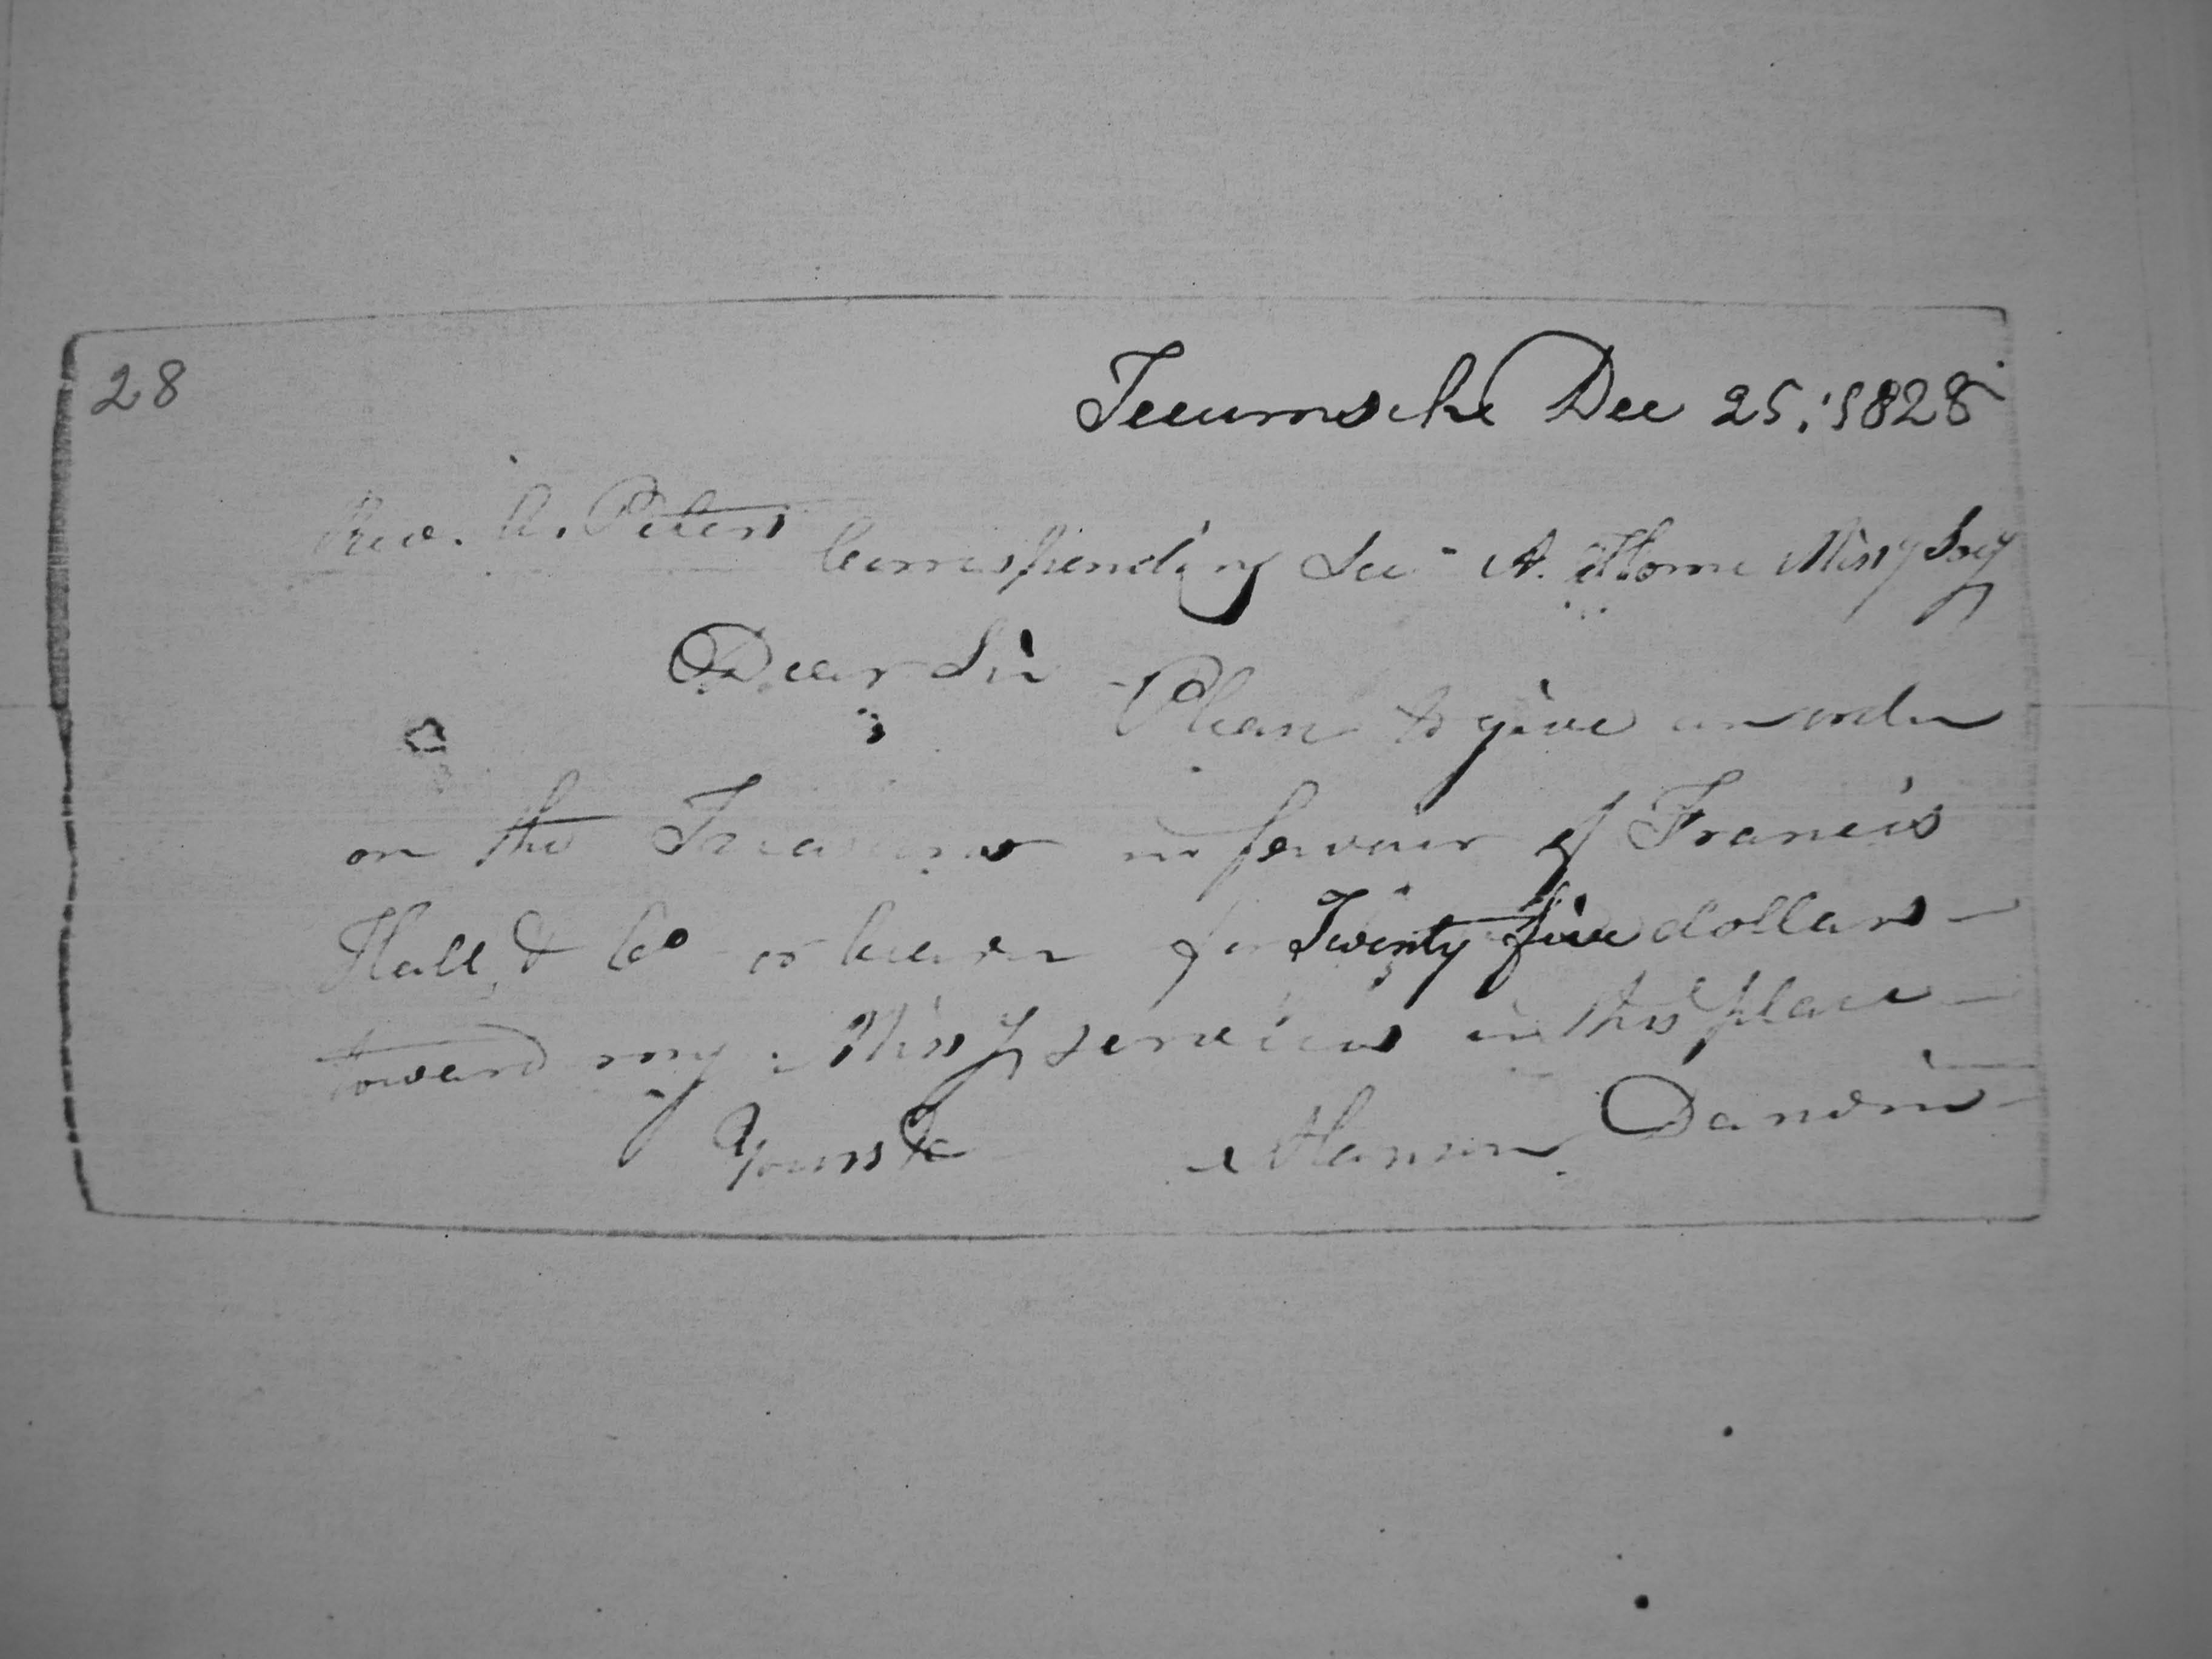 28
Tecumseh Dec 25. 1828
Rev. A. Peters
Corresponding Sec - A. Home Missy Socy
Dear Sir
Please to give an order
on the Treasurer in favour of Francis
Hall & Co or bearer for Twenty five dollars -
toward my Missy services in this place -
Yours &c Alanson Darwin